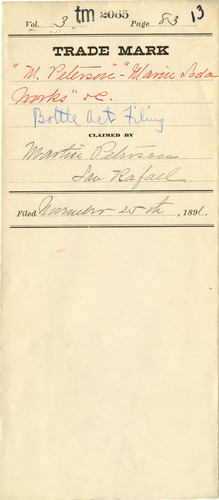 tm 2065
Vol. 3 Page 83 13
TRADE MARK
"M. Peterson" - "Marin Soda
Works" &c.
Bottle Act Filing
CLAIMED BY
Martin Peterson
San Rafael
Filed November 25th, 1896